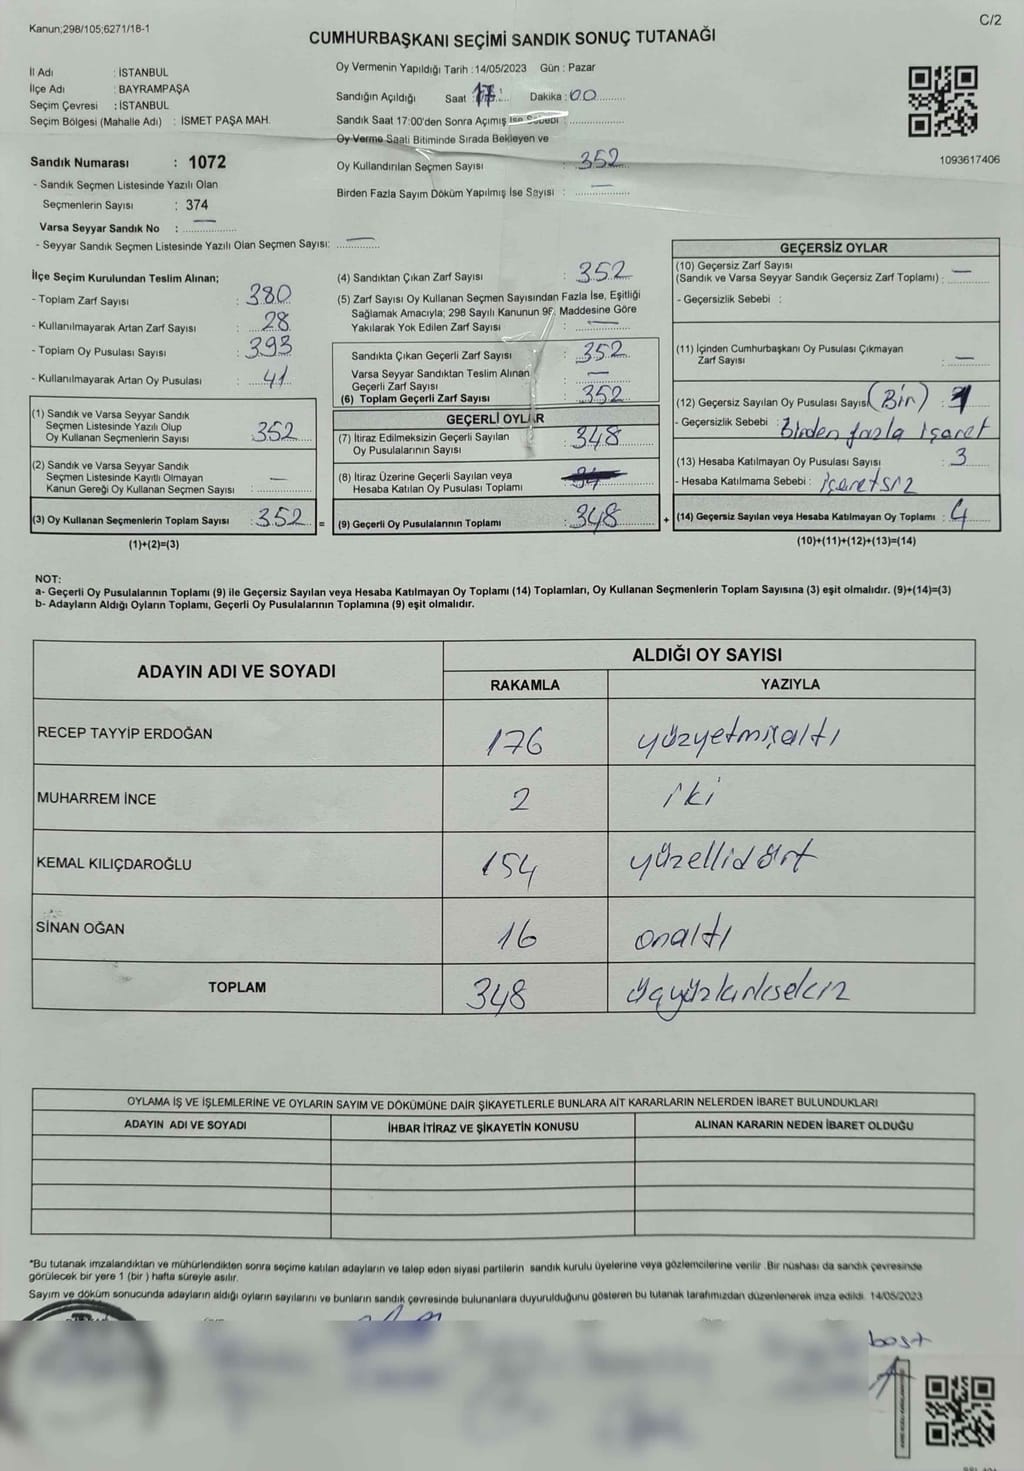 Kanun;298/105;6271/18-1
C/2
CUMHURBAŞKANI SEÇİMİ SANDIK SONUÇ TUTANAĞI
İl Adı : İSTANBUL
İlçe Adı : BAYRAMPAŞA
Seçim Çevresi : İSTANBUL
Seçim Bölgesi (Mahalle Adı) : İSMET PAŞA MAH.
Oy Vermenin Yapıldığı Tarih : 14/05/2023 Gün : Pazar
Sandığın Açıldığı Saat : 17 Dakika : 00
Sandık Saat 17:00'den Sonra Açımış İse Sebebi :
Oy Verme Saati Bitiminde Sırada Bekleyen ve
Oy Kullandırılan Seçmen Sayısı : 352
Birden Fazla Sayım Döküm Yapılmış İse Sayısı : —
1093617406
Sandık Numarası : 1072
- Sandık Seçmen Listesinde Yazılı Olan
Seçmenlerin Sayısı : 374
Varsa Seyyar Sandık No : —
- Seyyar Sandık Seçmen Listesinde Yazılı Olan Seçmen Sayısı: —
İlçe Seçim Kurulundan Teslim Alınan;
- Toplam Zarf Sayısı : 380
- Kullanılmayarak Artan Zarf Sayısı : 28
- Toplam Oy Pusulası Sayısı : 393
- Kullanılmayarak Artan Oy Pusulası : 41
(1) Sandık ve Varsa Seyyar Sandık
Seçmen Listesinde Yazılı Olup
Oy Kullanan Seçmenlerin Sayısı 352
(2) Sandık ve Varsa Seyyar Sandık
Seçmen Listesinde Kayıtlı Olmayan
Kanun Gereği Oy Kullanan Seçmen Sayısı : —
(3) Oy Kullanan Seçmenlerin Toplam Sayısı : 352 =
(1)+(2)=(3)
(4) Sandıktan Çıkan Zarf Sayısı : 352
(5) Zarf Sayısı Oy Kullanan Seçmen Sayısından Fazla İse, Eşitliği
Sağlamak Amacıyla; 298 Sayılı Kanunun 98. Maddesine Göre
Yakılarak Yok Edilen Zarf Sayısı : —
Sandıkta Çıkan Geçerli Zarf Sayısı : 352
Varsa Seyyar Sandıktan Teslim Alınan
Geçerli Zarf Sayısı : —
(6) Toplam Geçerli Zarf Sayısı : 352
GEÇERLİ OYLAR
(7) İtiraz Edilmeksizin Geçerli Sayılan
Oy Pusulasının Sayısı : 348
(8) İtiraz Üzerine Geçerli Sayılan veya
Hesaba Katılan Oy Pusulası Toplamı :
(9) Geçerli Oy Pusulalarının Toplamı : 348 +
GEÇERSİZ OYLAR
(10) Geçersiz Zarf Sayısı
(Sandık ve Varsa Seyyar Sandık Geçersiz Zarf Toplamı) : —
- Geçersizlik Sebebi :
(11) İçinden Cumhurbaşkanı Oy Pusulası Çıkmayan
Zarf Sayısı : —
(12) Geçersiz Sayılan Oy Pusulası Sayısı (Bir) : 1
- Geçersizlik Sebebi : Birden fazla işaret
(13) Hesaba Katılmayan Oy Pusulası Sayısı : 3
- Hesaba Katılmama Sebebi : işaretsiz
(14) Geçersiz Sayılan veya Hesaba Katılmayan Oy Toplamı : 4
(10)+(11)+(12)+(13)=(14)
NOT:
a- Geçerli Oy Pusulalarının Toplamı (9) ile Geçersiz Sayılan veya Hesaba Katılmayan Oy Toplamı (14) Toplamları, Oy Kullanan Seçmenlerin Toplam Sayısına (3) eşit olmalıdır. (9)+(14)=(3)
b- Adayların Aldığı Oyların Toplamı, Geçerli Oy Pusulalarının Toplamına (9) eşit olmalıdır.
ADAYIN ADI VE SOYADI
ALDIĞI OY SAYISI
RAKAMLA YAZIYLA
RECEP TAYYİP ERDOĞAN 176 yüzyetmişaltı
MUHARREM İNCE 2 iki
KEMAL KILIÇDAROĞLU 154 yüzellidört
SİNAN OĞAN 16 onaltı
TOPLAM 348 üçyüzkırksekiz
OYLAMA İŞ VE İŞLEMLERİNE VE OYLARIN SAYIM VE DÖKÜMÜNE DAİR ŞİKAYETLERLE BUNLARA AİT KARARLARIN NELERDEN İBARET BULUNDUKLARI
ADAYIN ADI VE SOYADI İHBAR İTİRAZ VE ŞİKAYETİN KONUSU ALINAN KARARIN NEDEN İBARET OLDUĞU
*Bu tutanak imzalandıktan ve mühürlendikten sonra seçime katılan adayların ve talep eden siyasi partilerin sandık kurulu üyelerine veya gözlemcilerine verilir .Bir nüshası da sandık çevresinde
görülecek bir yere 1 (bir ) hafta süreyle asılır.
Sayım ve döküm sonucunda adayların aldığı oyların sayılarını ve bunların sandık çevresinde bulunanlara duyurulduğunu gösteren bu tutanak tarafımızdan düzenlenerek imza edildi. 14/05/2023